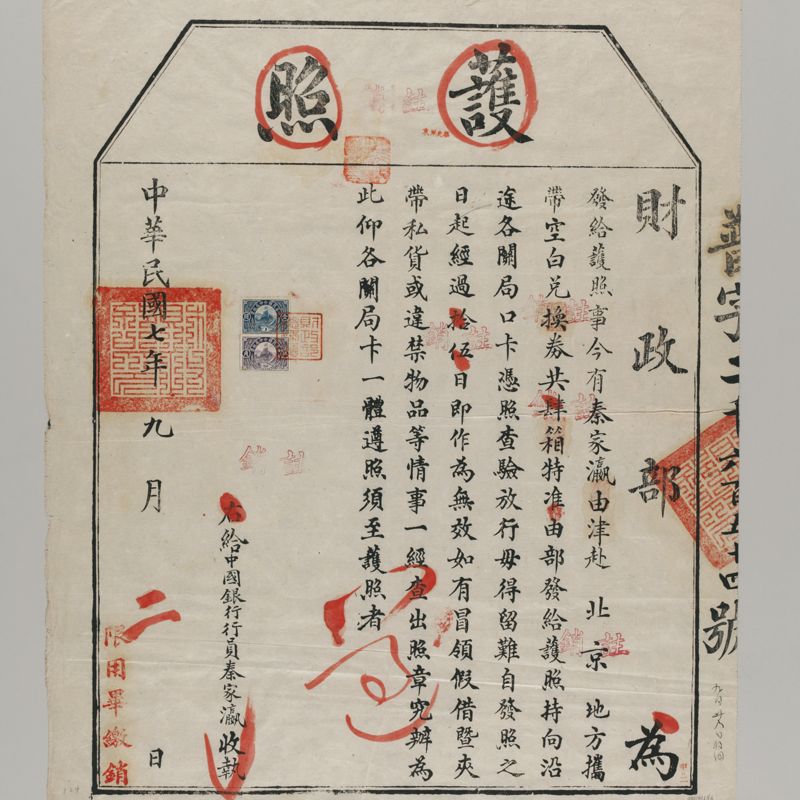 護照
財政部為
發給護照事今有秦家瀛由津赴北京地方攜
帶空白兌換券共肆箱特准由部發給護照持向沿
途各關局口卡憑照查驗放行毋得留難自發照之
日起經過拾伍日即作為無效如有冒領假借暨夾
帶私貨或違禁物品等情事一經查出照章究辦為
此仰各關局卡一體遵照須至護照者
右給中國銀行行員秦家瀛收執
中華民國七年九月二日
限用畢繳銷
註銷
註銷
註銷
註銷
註銷
註銷